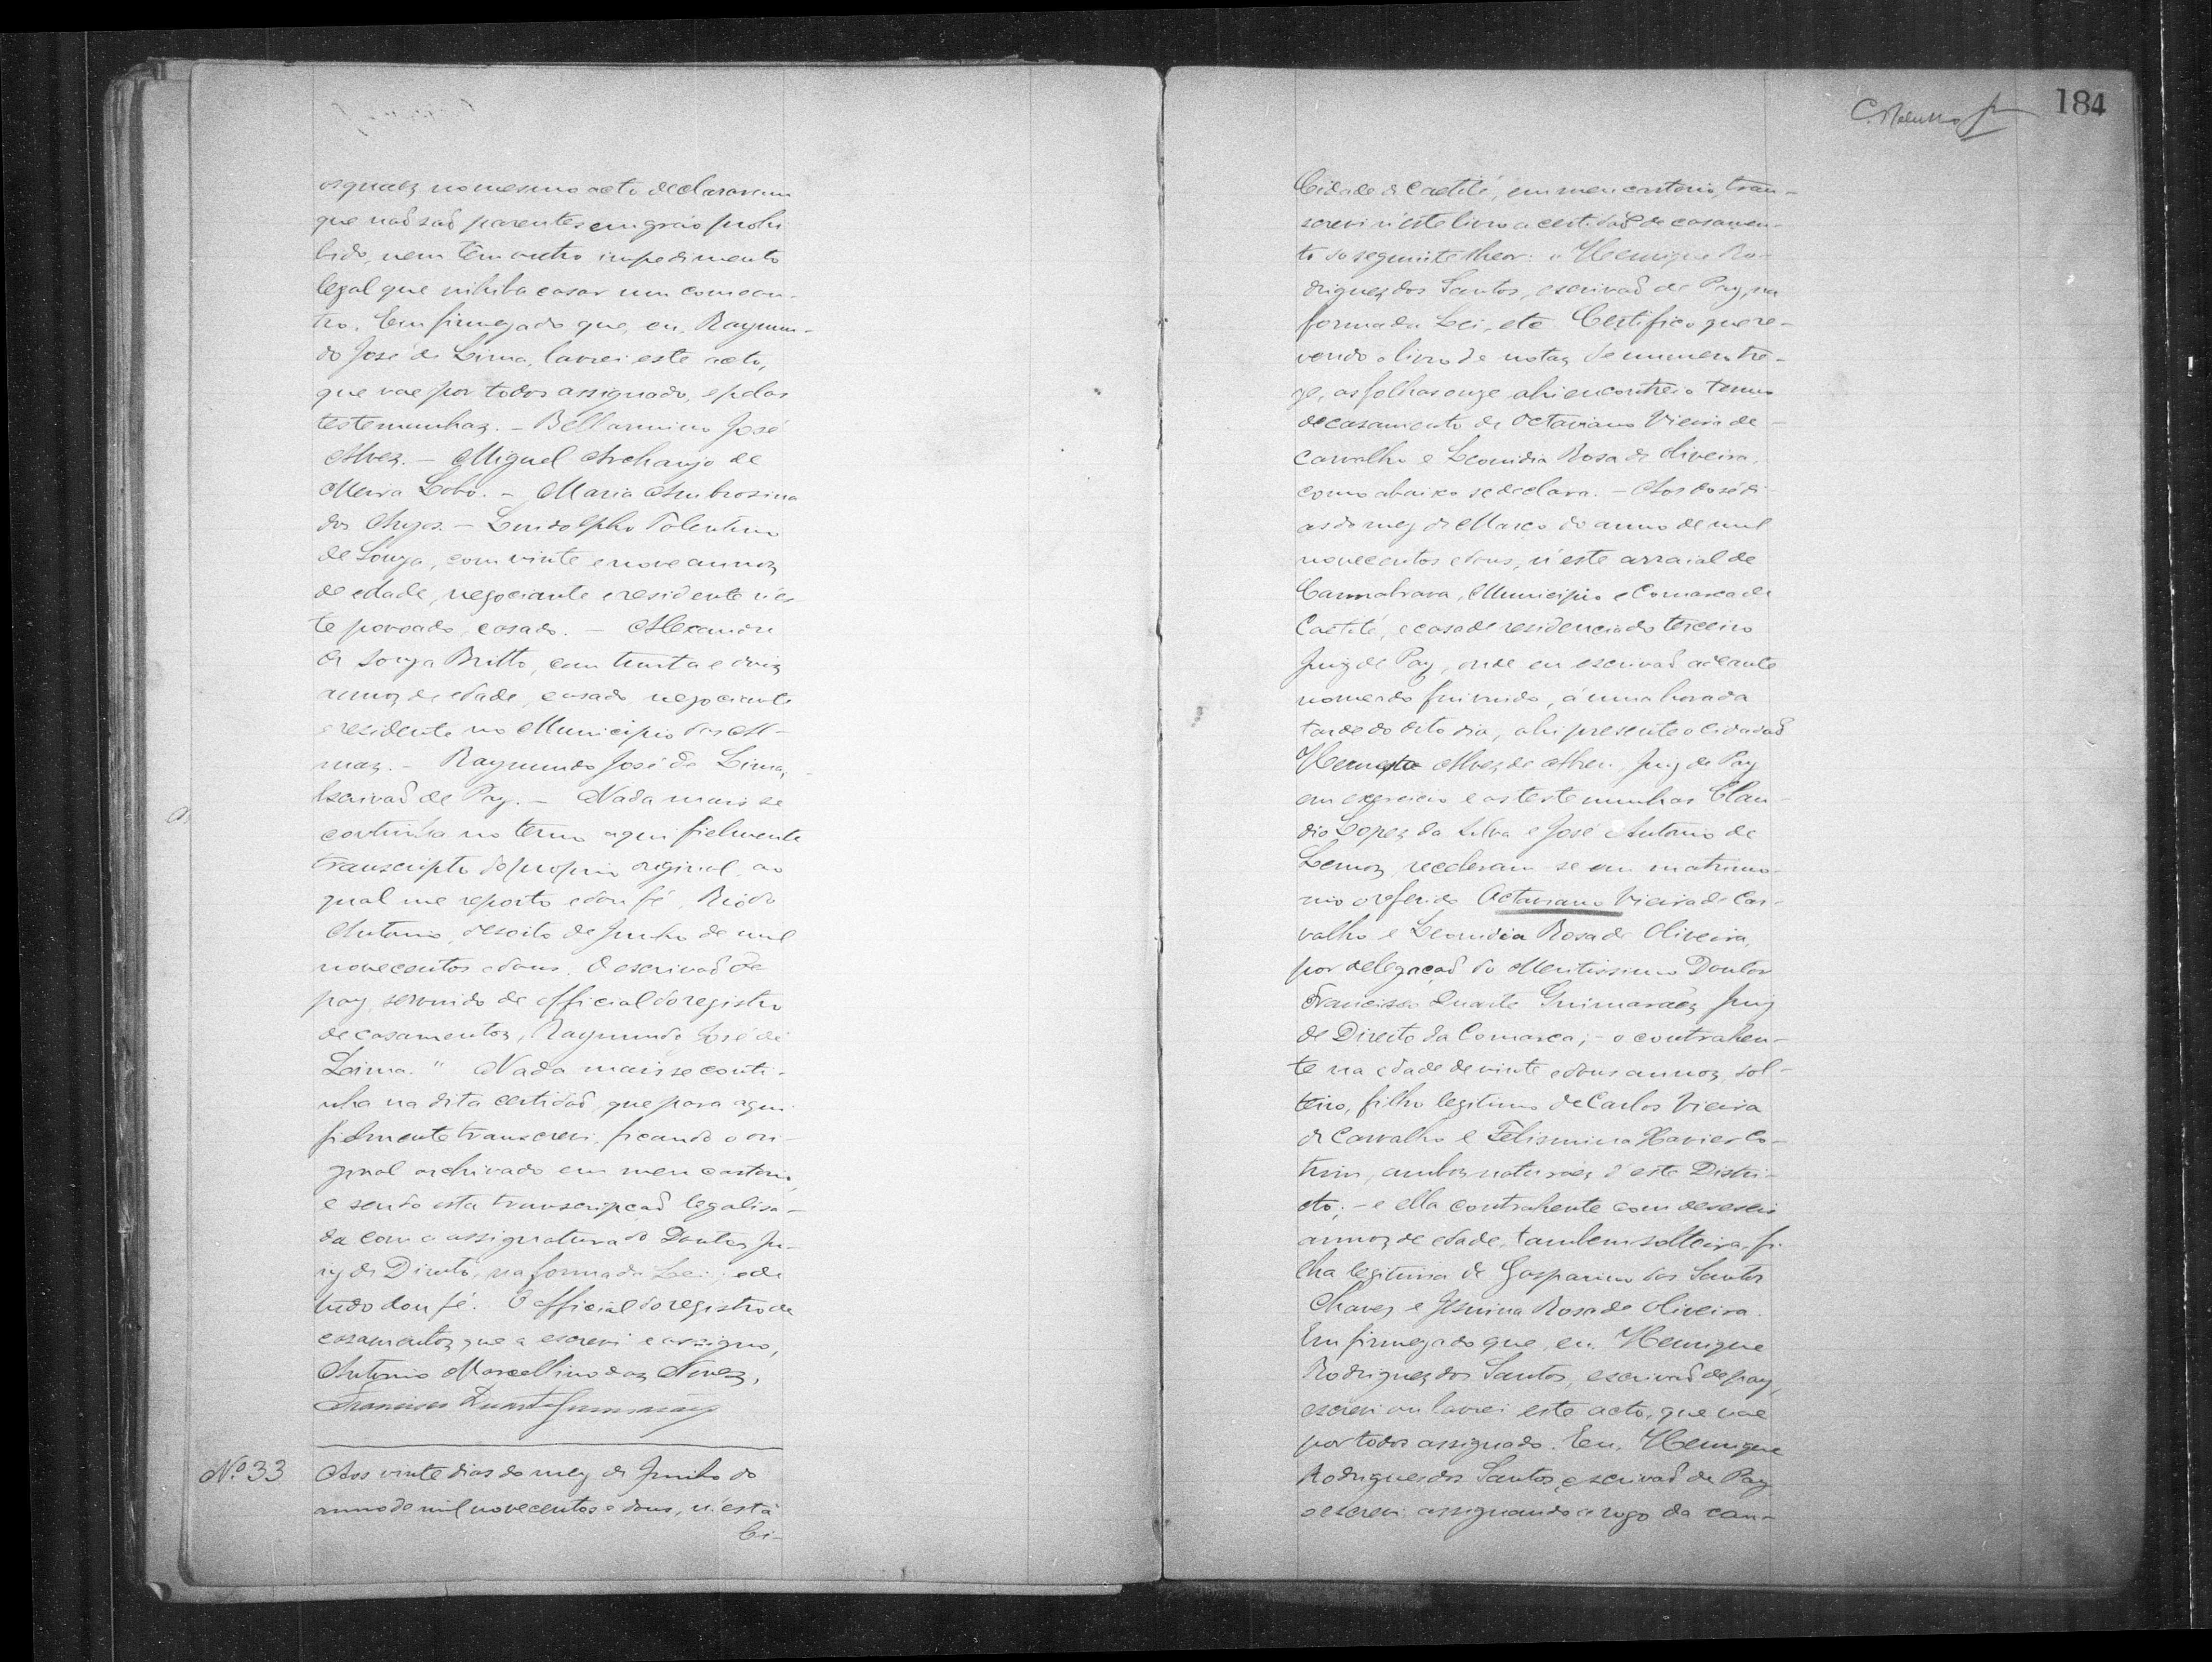 osquaes no mesmo acto declararam
que naõ saõ parentes em gráo prohi
bido, nem têm outro impedimento
legal que inhiba casar um com ou-
tro. Em firmeza do que, eu, Raymun-
do José de Lima, lavrei este acto,
que vae por todos assignado, e pelas
testemunhas. - Bellarmino José
Alves. - Miguel Archanjo de
Meira Lobo. - Maria Ambrosina
dos Anjos. - Lindolpho Tolentino
de Souza, com vinte e nove annos
de edade, negociante e residente n'es
te povoado, casado. - Alexandre
de Souza Britto, com trinta e dois
annos de edade, casado, negociante
e residente no Municipio das Al-
mas. - Raymundo José de Lima,
Escrivaõ de Paz. - Nada mais se
continha no termo aqui fielmente
transcripto do proprio original, ao
qual me reporto e dou fé. Rio do
Antonio, desoito de Junho de mil
novecentos e dous. O escrivaõ de
paz, servindo de official do registro
de casamentos, Raymundo José de
Lima." Nada mais se conti-
nha na dita certidaõ, que para aqui
fielmente transcrevi, ficando o ori-
ginal archivado em meu cartorio,
e sendo esta transcripçaõ legalisa-
da com a assignatura do Doutor Ju-
iz de Direito, na forma da Lei; e de
tudo dou fé. O official do registro de
casamentos que a escrevi e assigno,
Antonio Marcellino das Neves,
Francisco Duarte Guimarães
Nº 33 Aos vinte dias do mez de Junho do
anno de mil novecentos e dous, n'esta
Ci-
184
Cidade de Caetité, em meu cartorio, tran-
screvi n'este livro a certidaõ de casamen-
to do seguinte theor: "Henrique Ro-
drigues dos Santos, escrivaõ de Paz, na
forma da Lei, etc Certifico que re-
vendo o livro de notas de numero tre-
ze, as folhas onze ahi encontrei o termo
de casamento de Octaviano Vieira de
Carvalho e Leonidia Rosa de Oliveira,
como abaixo se declara. - Aos dose di
as do mez de Março do anno de mil
novecentos e dous, n'este arraial de
Cannabrava, Municipio e Comarca de
Caetité, e casa de residencia do terceiro
Juiz de Paz, onde eu escrivaõ adeante
nomeado fui vindo, á uma hora da
tarde do dito dia, ahi presente o cidadaõ
Hernesto Alves de Abreu, Juiz de Paz
em exercicio e as testemunhas Clau-
dio Lopes da Silva e José Antonio de
Lemos, receberam-se em matrimo-
nio o referido Octaviano Vieira de Car-
valho e Leonidia Rosa de Oliveira,
por delegaçaõ do Meritissimo Doutor
Francisco Duarte Guimarães, Juiz
de Direito da Comarca; - o contrahen-
te na edade de vinte e dous annos, sol-
teiro, filho legitimo de Carlos Vieira
de Carvalho e Felismina Xavier Co-
trim, ambos naturáes d'este Distri-
cto; - e ella contrahente com deseseis
annos de edade, tambem solteira, fi
lha legitima de Gasparino dos Santos
Chaves e Jesuina Rosa de Oliveira.
Em firmeza do que, eu, Henrique
Rodrigues dos Santos, escrivaõ de paz,
escrevi ou lavrei este acto, que vae
por todos assignado. Eu, Henrique
Rodrigues dos Santos, escrivaõ de Paz
o escrevi assignando a rogo da con-